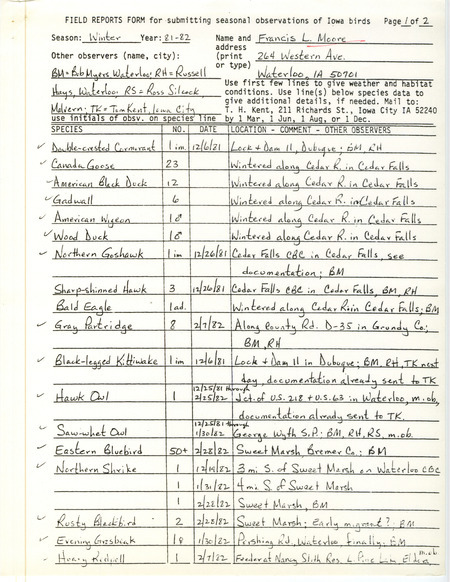 FIELD REPORTS FORM for submitting seasonal observations of Iowa birds Page 1 of 2
Season: Winter Year: 81-82 Name and Francis L. Moore
address
Other observers (name, city): (print 264 Western Ave.
or type)
BM=Bob Myers Waterloo; RH=Russell Waterloo, IA 50701
Hays, Waterloo; RS=Ross Silcock Use first few lines to give weather and habitat
conditions. Use line(s) below species data to
Malvern; TK=Tom Kent, Iowa City give additional details, if needed. Mail to:
T. H. Kent, 211 Richards St., Iowa City IA 52240
use initials of obsv. on species line by 1 Mar, 1 Jun, 1 Aug, or 1 Dec.
SPECIES NO. DATE LOCATION - COMMENT - OTHER OBSERVERS
✓ Double-crested Cormorant 1 im. 12/6/81 Lock & Dam 11, Dubuque; BM, RH
✓ Canada Goose 23 Wintered along Cedar R. in Cedar Falls
✓ American Black Duck 12 Wintered along Cedar R. in Cedar Falls
✓ Gadwall 6 Wintered along Cedar R. in Cedar Falls
✓ American Wigeon 1♂ Wintered along Cedar R. in Cedar Falls
✓ Wood Duck 1♂ Wintered along Cedar R. in Cedar Falls
✓ Northern Goshawk 1 im 12/26/81 Cedar Falls CBC in Cedar Falls, see
documentation; BM
Sharp-shinned Hawk 3 12/26/81 Cedar Falls CBC in Cedar Falls, BM, RH
Bald Eagle 1 ad. Wintered along Cedar R. in Cedar Falls; BM
✓ Gray Partridge 8 2/7/82 Along County Rd. D-35 in Grundy Co.;
BM, RH
✓ Black-legged Kittiwake 1 im 12/6/81 Lock & Dam 11 in Dubuque; BM, RH, TK next
day, documentation already sent to TK
✓ Hawk Owl 1 12/25/81 through 2/25/82 Jct. of U.S. 218 & U.S. 63 in Waterloo, m.ob,
documentation already sent to TK.
✓ Saw-whet Owl 12/25/81 through 1/30/82 George Wyth S.P.; BM, RH, RS, m.ob.
✓ Eastern Bluebird 50+ 2/28/82 Sweet Marsh, Bremer Co.; BM
✓ Northern Shrike 1 12/19/82 3 mi. S. of Sweet Marsh on Waterloo CBC
1 1/31/82 4 mi. S of Sweet Marsh
1 2/28/82 Sweet Marsh, BM
✓ Rusty Blackbird 2 2/28/82 Sweet Marsh; Early migrant?; BM
✓ Evening Grosbeak 1♀ 1/30/82 Pershing Rd., Waterloo, finally; BM
✓ Hoary Redpoll 1 2/7/82 Feeder at Nancy Slife Res. Elder m.ob